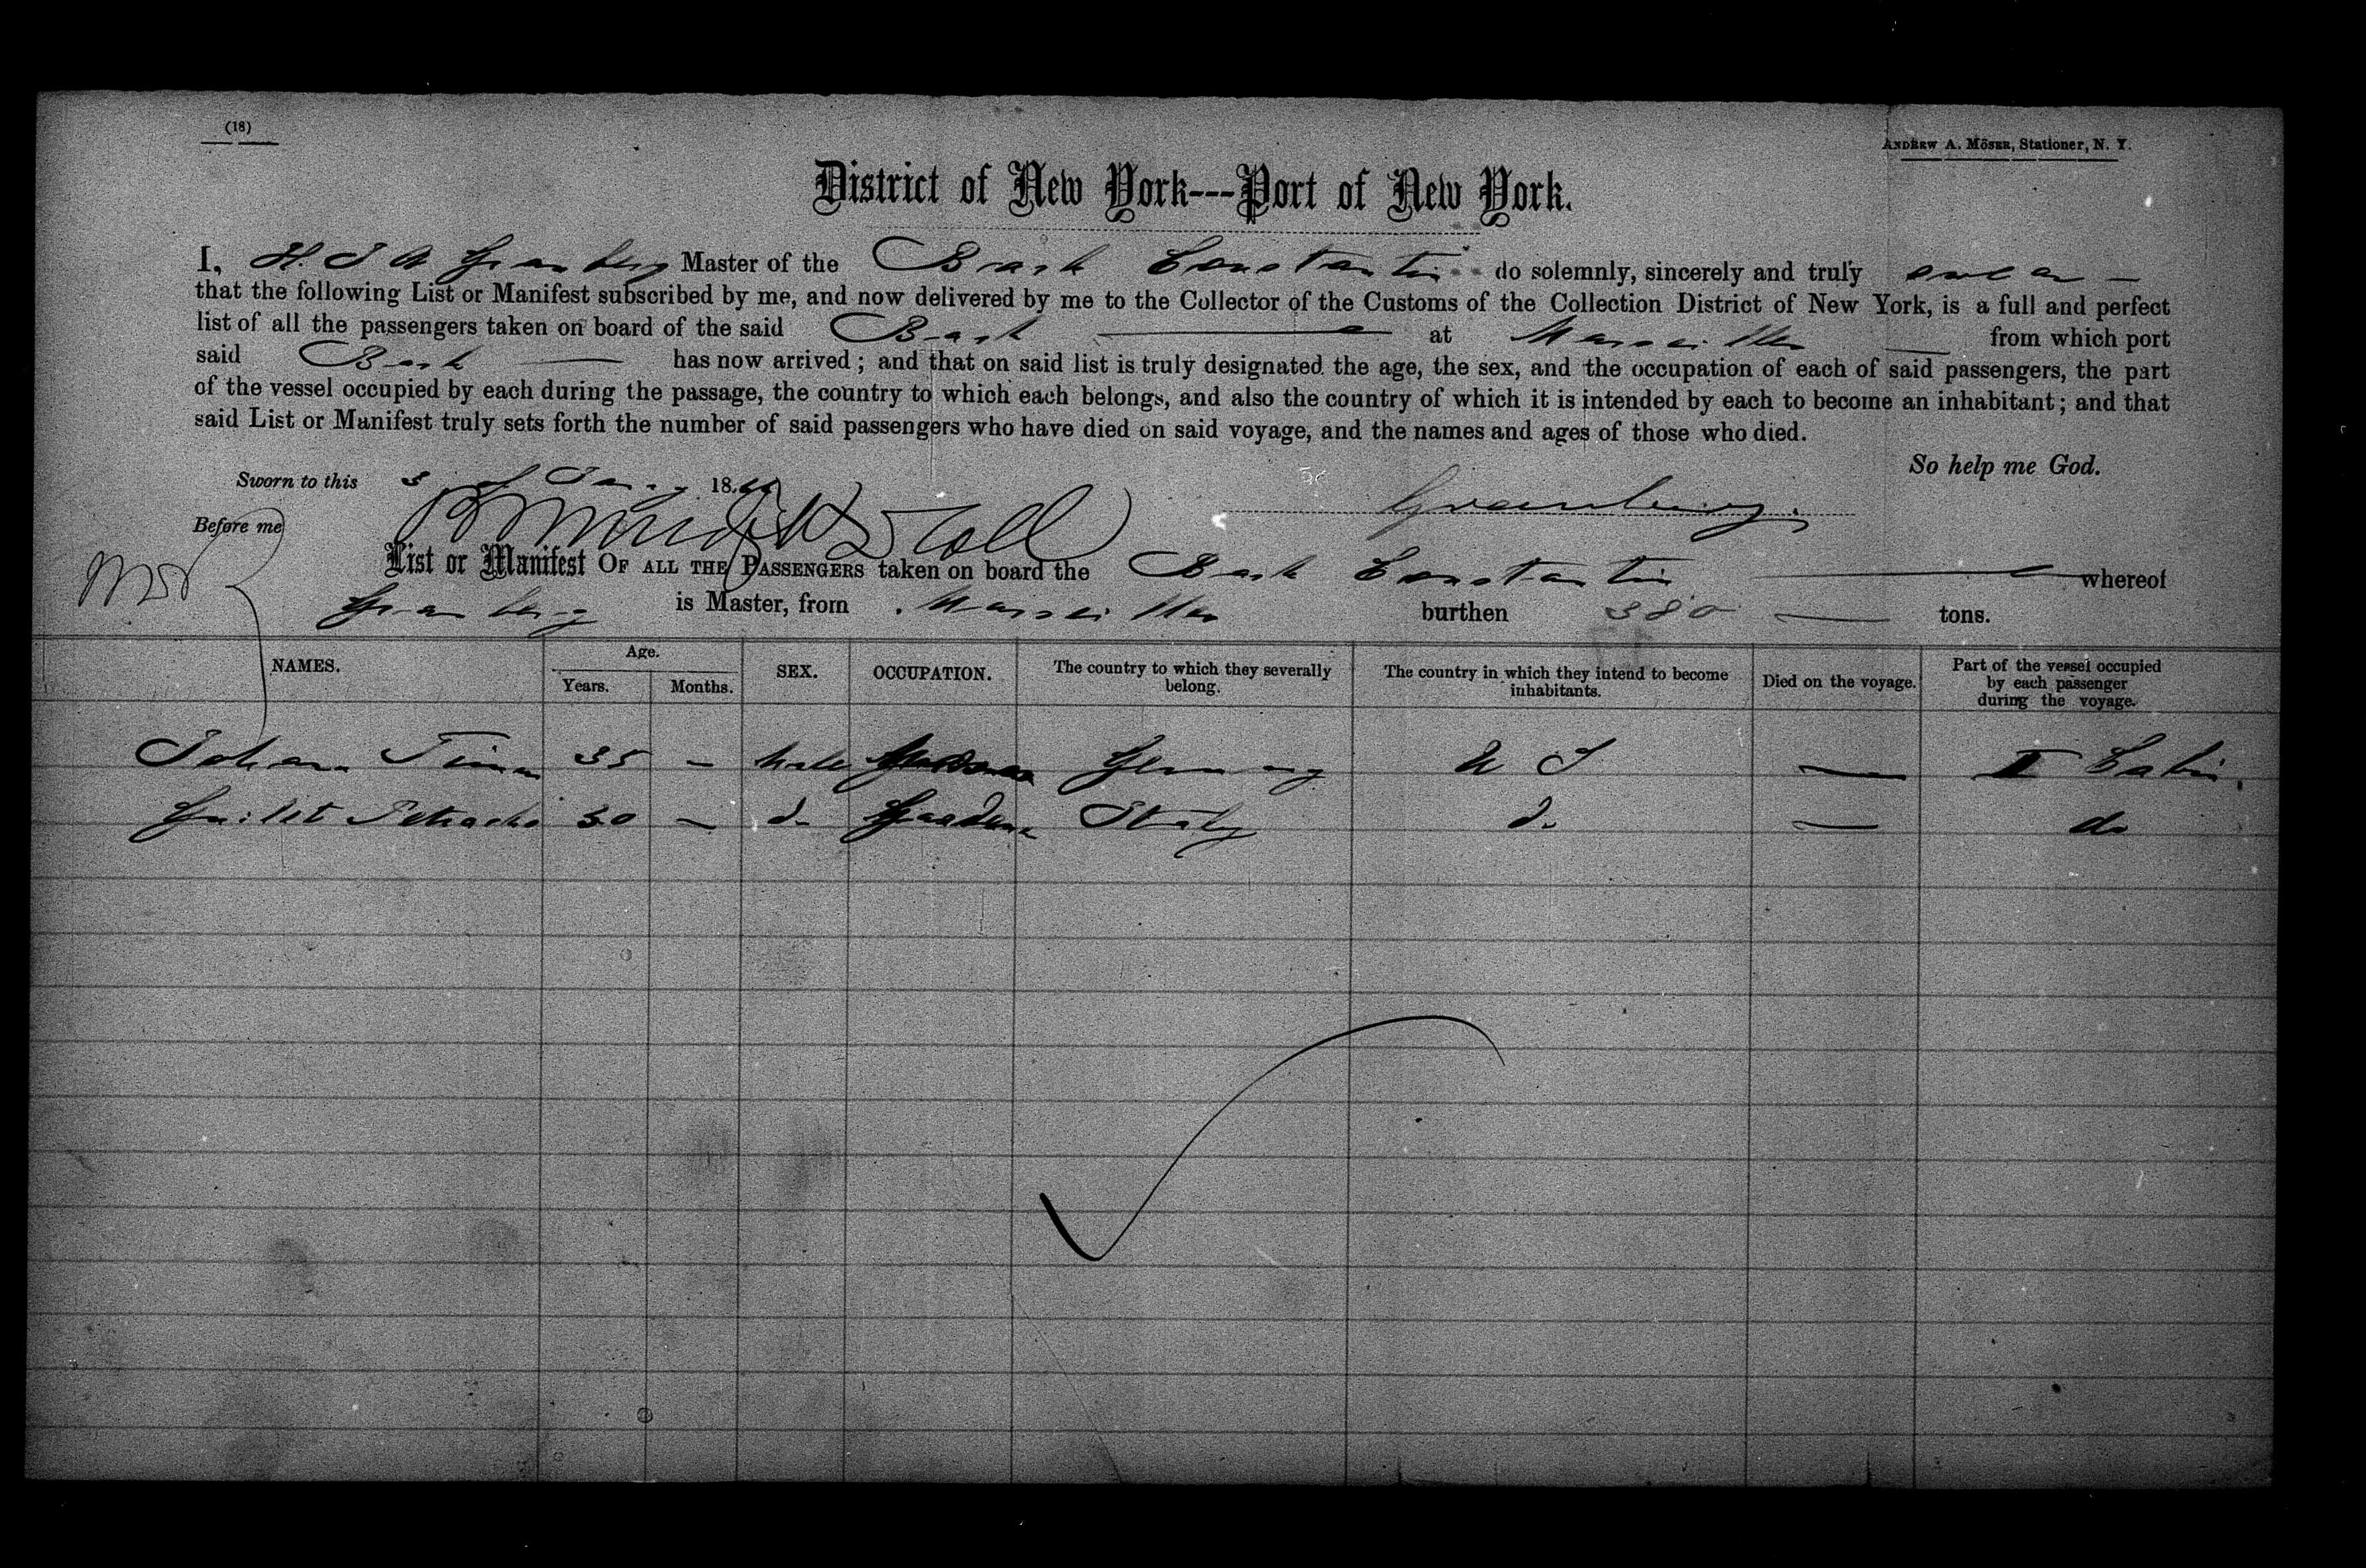 (18)
ANDREW A. MÖSER, Stationer, N. Y.
District of New York---Port of New York.
I, H. J A Granberg Master of the Bark Constantin do solemnly, sincerely and truly swear
that the following List or Manifest subscribed by me, and now delivered by me to the Collector of the Customs of the Collection District of New York, is a full and perfect
list of all the passengers taken on board of the said Bark at Marseilles from which port
said Bark has now arrived; and that on said list is truly designated the age, the sex, and the occupation of each of said passengers, the part
of the vessel occupied by each during the passage, the country to which each belongs, and also the country of which it is intended by each to become an inhabitant; and that
said List or Manifest truly sets forth the number of said passengers who have died on said voyage, and the names and ages of those who died.
So help me God.
Sworn to this 3 of 18
Granberg.
Before me
List or Manifest OF ALL THE PASSENGERS taken on board the Bark Constantin whereof
Granberg is Master, from Marseilles burthen 380 tons.
NAMES. Age. Years. Months. SEX. OCCUPATION. The country to which they severally belong. The country in which they intend to become inhabitants. Died on the voyage. Part of the vessel occupied by each passenger during the voyage.
Johann 35 — Male Germany U S — II Cabin
30 — do Gardener Italy do — do